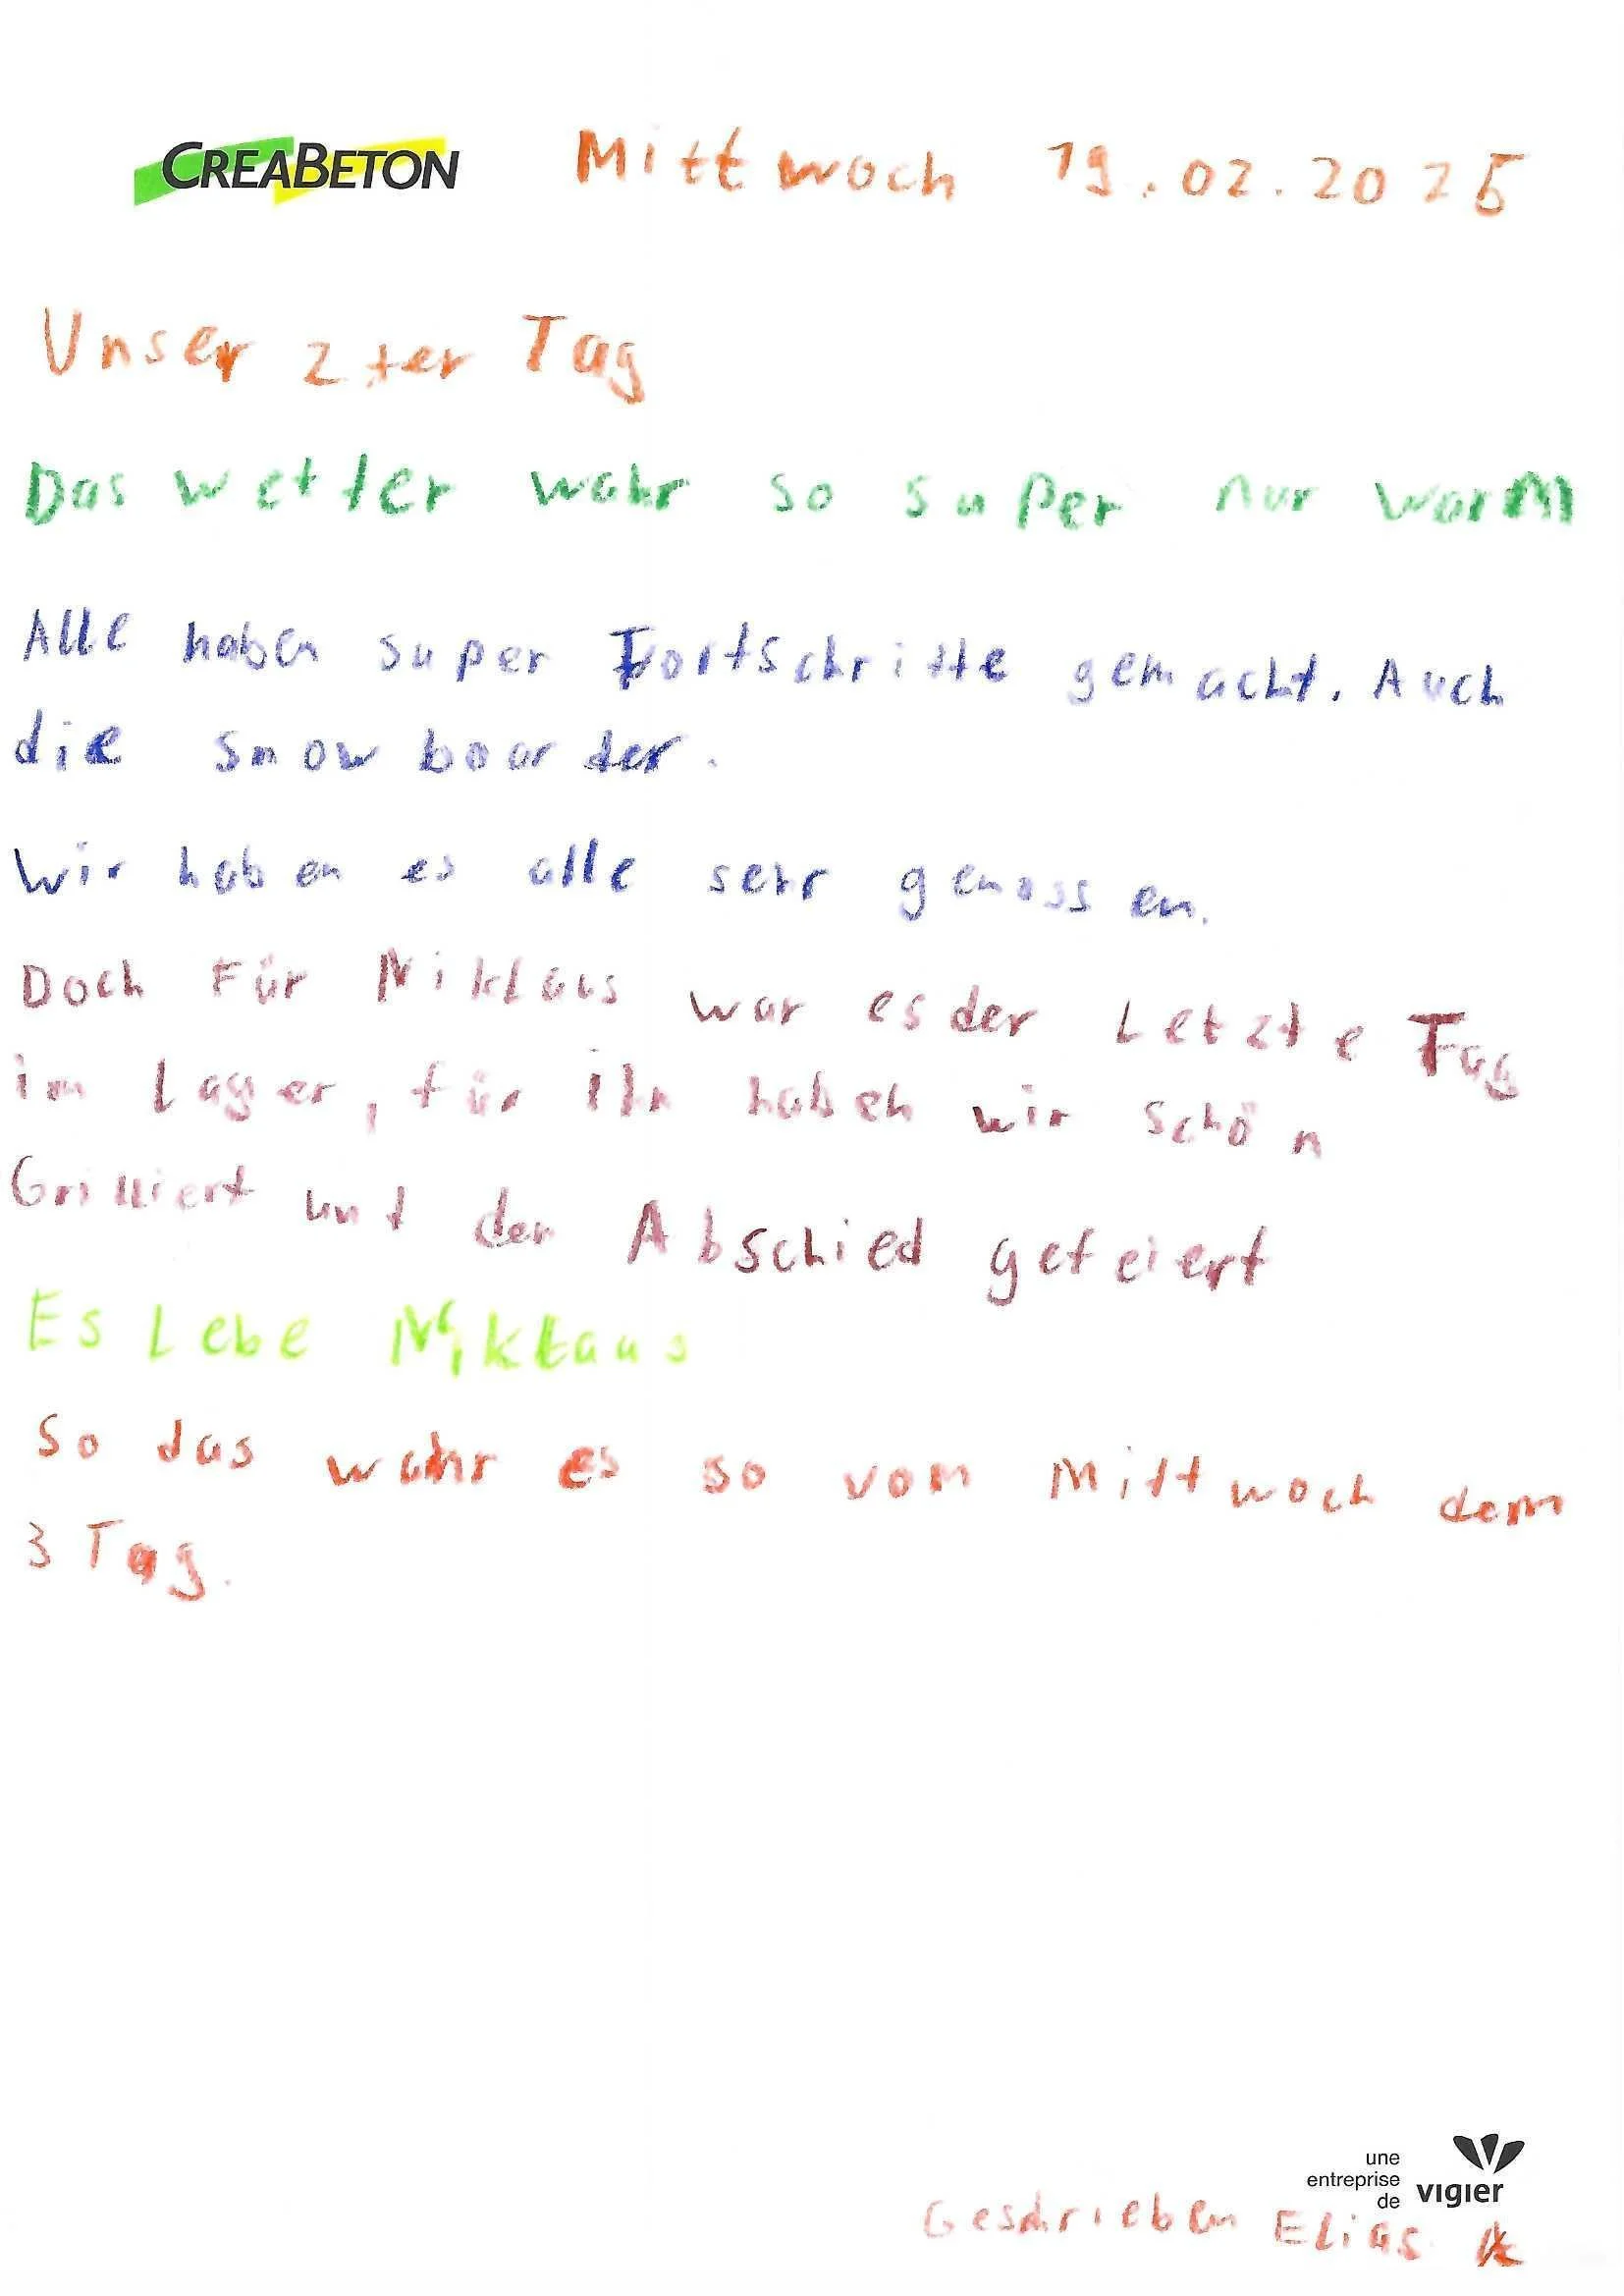 CREABETON Mittwoch 19.02.2025
Unser 2ter Tag
Das wetter wahr so super nur warm
Alle haben super Fortschritte gemacht. Auch
die snowboarder.
Wir haben es alle sehr genossen.
Doch Für Niklaus war es der Letzte Tag
im Lager, für ihn haben wir schön
Grilliert unt den Abschied gefeiert
Es Lebe Niklaus
So das wahr es so vom Mittwoch dem
3 Tag.
une
entreprise
de vigier
Geschrieben Elias K